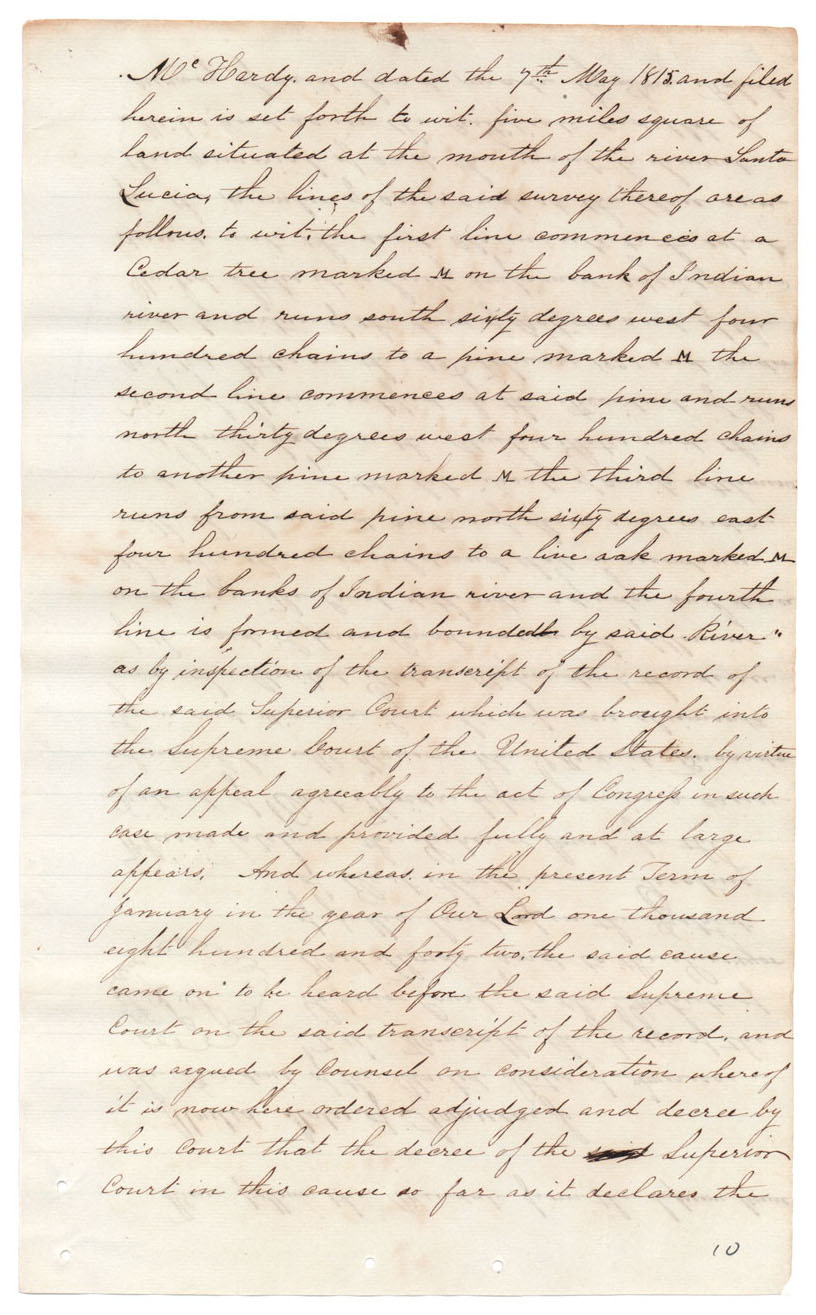 Mc Hardy. and dated the 7th May 1815. and filed
herein is set forth to wit. five miles square of
land situated at the mouth of the river Santa
Lucia, the lines of the said survey thereof are as
follows. to wit; the first line commences at a
Cedar tree marked M on the bank of Indian
river and runs south sixty degrees west four
hundred chains to a pine marked M the
second line commences at said pine and runs
north thirty degrees west four hundred chains
to another pine marked M the third line
runs from said pine north sixty degrees east
four hundred chains to a live oak marked M
on the banks of Indian river and the fourth
line is formed and bounded by said River"
as by inspection of the transcript of the record of
the said Superior Court which was brought into
the Supreme Court of the United States. by virtue
of an appeal agreeably to the act of Congress in such
case made and provided fully and at large
appears. And whereas. in the present Term of
January in the year of Our Lord one thousand
eight hundred and forty two. the said cause
came on to be heard before the said Supreme
Court on the said transcript of the record. and
was argued by Counsel on consideration whereof
it is now here ordered adjudged and decree by
this Court that the decree of the said Superior
Court in this cause so far as it declares the
10